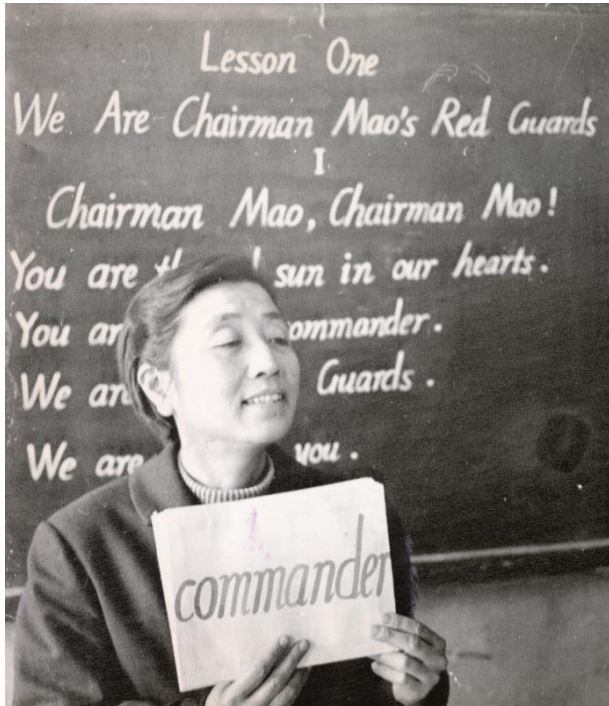 Lesson One
We Are Chairman Mao's Red Guards
I
Chairman Mao, Chairman Mao!
You are sun in our hearts.
You commander.
We Guards.
We are you.
commander